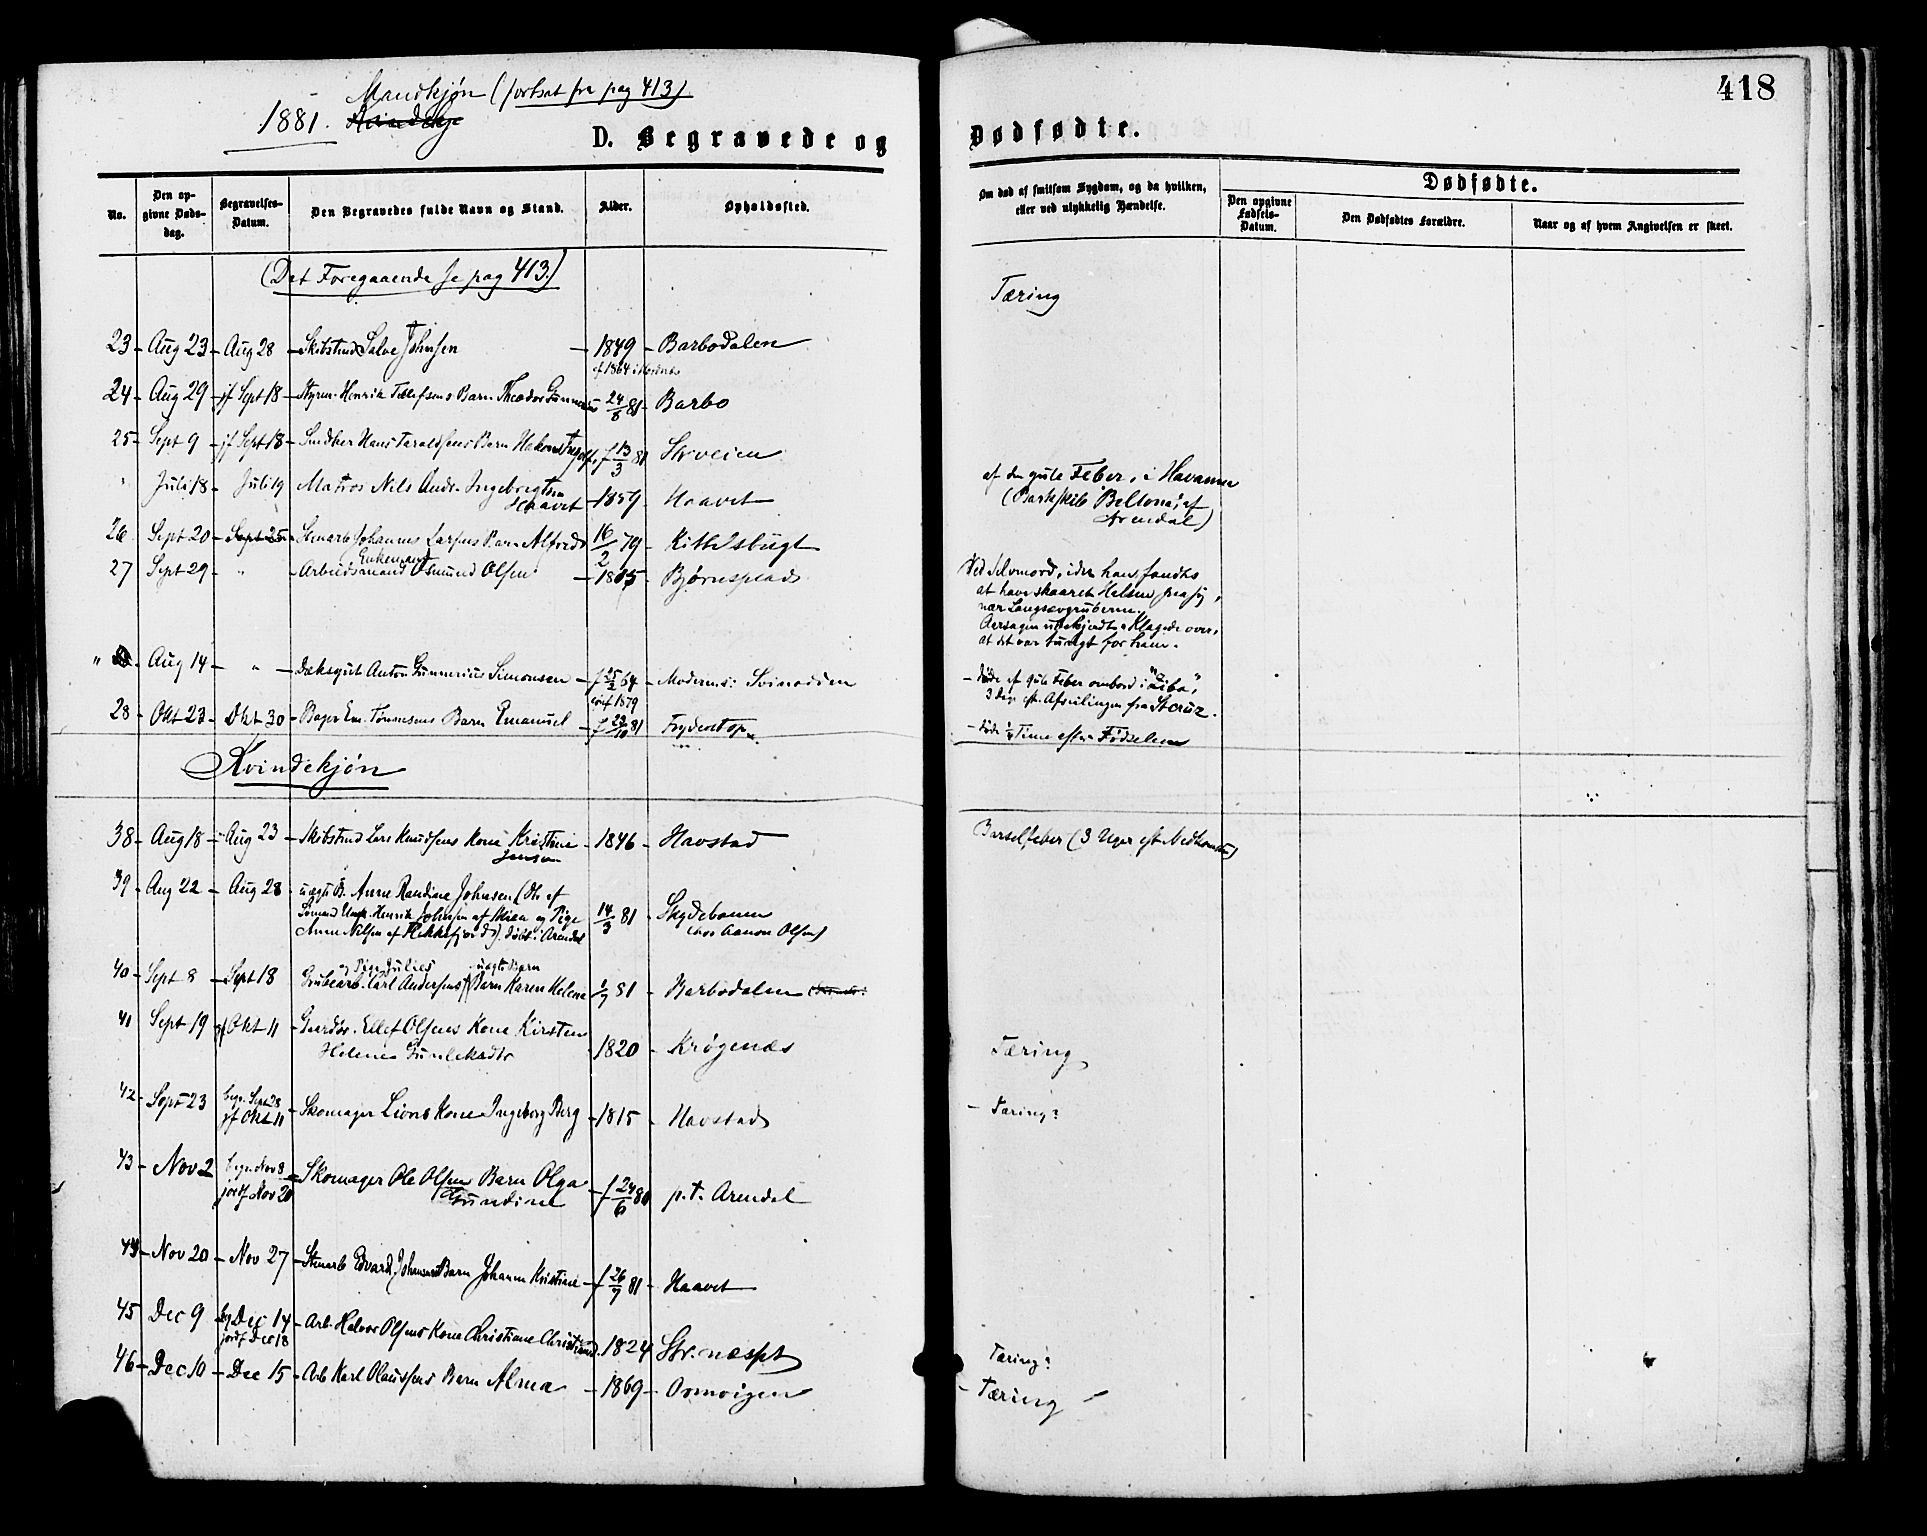 418
Mandkjøn (fortsat fra pag 413)
1881. Kvindekj
D. Begravede og Dødfødte.
No.
Den opgivne Dødsdag.
Begravelses-Datum.
Den Begravedes fulde Navn og Stand.
Alder.
Opholdssted.
Om død af smitsom Sygdom, og da hvilken, eller ved ulykkelig Hændelse.
Dødfødte.
Den opgivne Fødsels-Datum.
Den Dødfødtes Forældre.
Naar og af hvem Angivelsen er skeet.
(Det Foregaaende se pag 413)
Tæring
23 - Aug 23 - Aug 28 - Skibstmd Salve Johnsen - 1849 - Barbodalen
24 - Aug 29 - jf Sept 18 - Styrm. Henrik Tellefsens Barn Theodor Gunnerius 24/8 81 - Barbo
25 - Sept 9 - jf Sept 18 - Snedker Hans Taraldsens Barn Hakon f 13/3 81 Strveien
" Juli 18 - Juli 19 Matros Nils Andr. Ingebrigtsen
Haavet - 1859 - Haavet
af den gule Feber, i Havanna
(Barkskib "Bellona", af
Arendal)
26 Sept 20 - Sept 25 - Stenarb Johannes Larsens Barn Alfred 16/2 79 - Kittelsbugt
27 Sept 29 - " - Arbeidsmand Enkemand Osmund Olsen - 1815 - Bjørnsplads
Ved Selvmord, idet han fandtes
at have skaaret Halsen paa sig,
nær Langsævgruberne.
Aarsagen ubekjendt. Klagede over,
at det var tungt for ham.
" Aug 14 - " - Dæksgut Anton Gunnerius Simonsen - f 25/2 64 - Moderns: Svinodden
- døde af gule Feber ombord i "Liba",
3 Dage eft. Afseilingen fra St Cruz.
conf 1879
28 - Okt 23 - Okt 30 - Bager Em. Tønnesens Barn Emanuel - f 22/10 81 Frydentop
- døde ½ Time efter Fødselen
Kvindekjøn
38 - Aug 18 - Aug 23 - Skibstmd Lars Knudsens Kone Kristine
Jensen - 1846 - Havstad
Barselfeber (3 Uger eft Nedkomsten)
39 - Aug 22 - Aug 28 - uægte B. Anne Randine Johnsen (Dtr af
Sømand Ungk. Henrik Johnsen af Skien og Pige
Anne Nilsen af Flekkefjord). døbt i Arendal
14/3 81 - Skydebanen
(hos Aanon Olsen)
og Pige Julies uægte Barn
40 - Sept 8 - Sept 18 Grubearb. Carl Andersens Barn Karen Helene 1/7 81 - Barbodalen
41 Sept 19 jf Okt 11 - Gaardbr. Ellef Olsens Kone Kirsten
Helene Gunleksdtr 1820 - Krøgenæs
Tæring
42 - Sept 23 begr. Sept 28
jf Okt 11 - Skomager Lions Kone Ingeborg Berg - 1815 - Havstad
- Tæring?
43 - Nov 2 begr. Nov 8
jordf Nov 20 - Skomager Ole Olsens Barn Olga
Gundine f 24/6 80 p.t. Arendal
44 - Nov 20 - Nov 27 - Stenarb Edvard Johansens Barn Johanne Kristine - f 26/7 81 - Haavet
45 - Dec 9 - bg Dec 14
jordf Dec 18 - Arb. Halvor Olsens Kone Christiane Christiansd. 1824 Str.næspt
Tæring?
46 - Dec 10 - Dec 15 - Arb Karl Olaussens Barn Alma - 1869 - Osmvigen
- Tæring